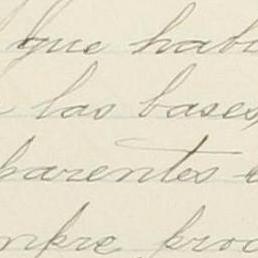 que hab
las bases,
parentes
mpre pro